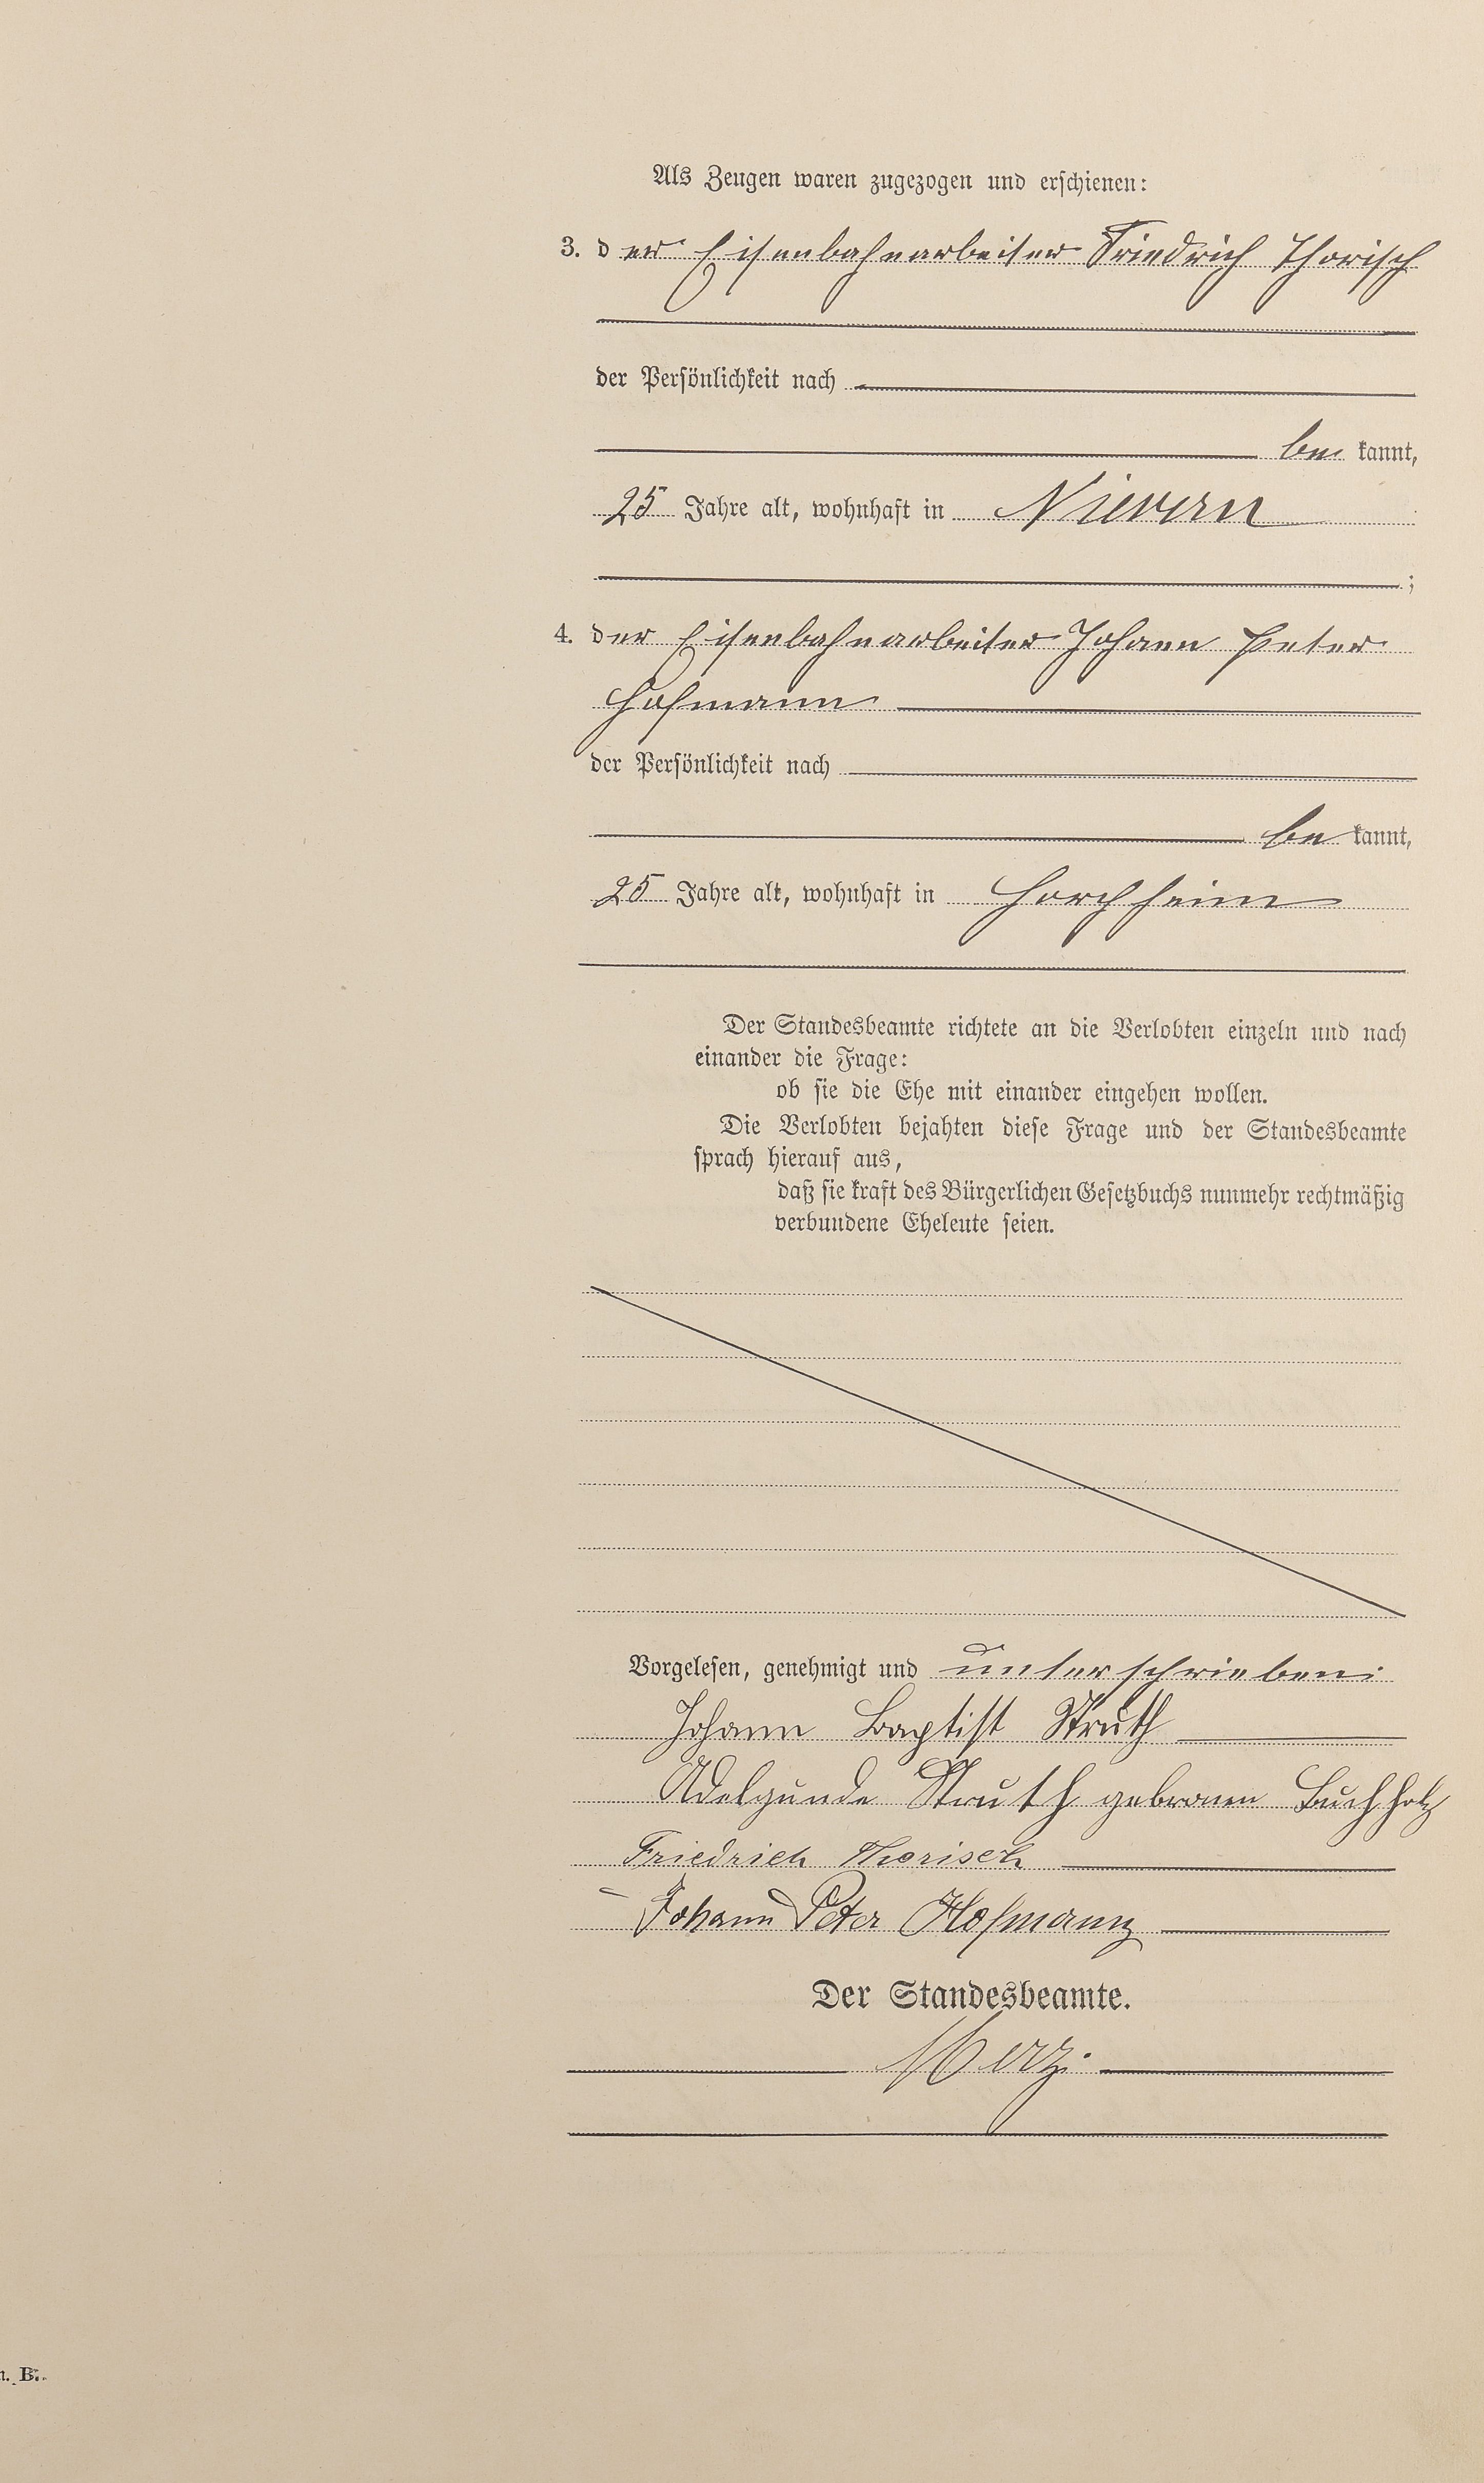 Als Zeugen waren zugezogen und erschienen:
3. der Eisenbahnarbeiter Friedrich Thorisch
der Persönlichkeit nach
be kannt,
25 Jahre alt, wohnhaft in Nievern
;
4. der Eisenbahnarbeiter Johann Peter
Hofmann
der Persönlichkeit nach
be kannt,
25 Jahre alt, wohnhaft in Horchheim
Der Standesbeamte richtete an die Verlobten einzeln und nach
einander die Frage:
ob sie die Ehe mit einander eingehen wollen.
Die Verlobten bejahten diese Frage und der Standesbeamte
sprach hierauf aus,
daß sie kraft des Bürgerlichen Gesetzbuchs nunmehr rechtmäßig
verbundene Eheleute seien.
Vorgelesen, genehmigt und unterschrieben:
Johann Baptist Struth
Adelgunde Struth geborenen Buchholz
Friedrich Thorisch
Johann Peter Hofmann
Der Standesbeamte.
B.